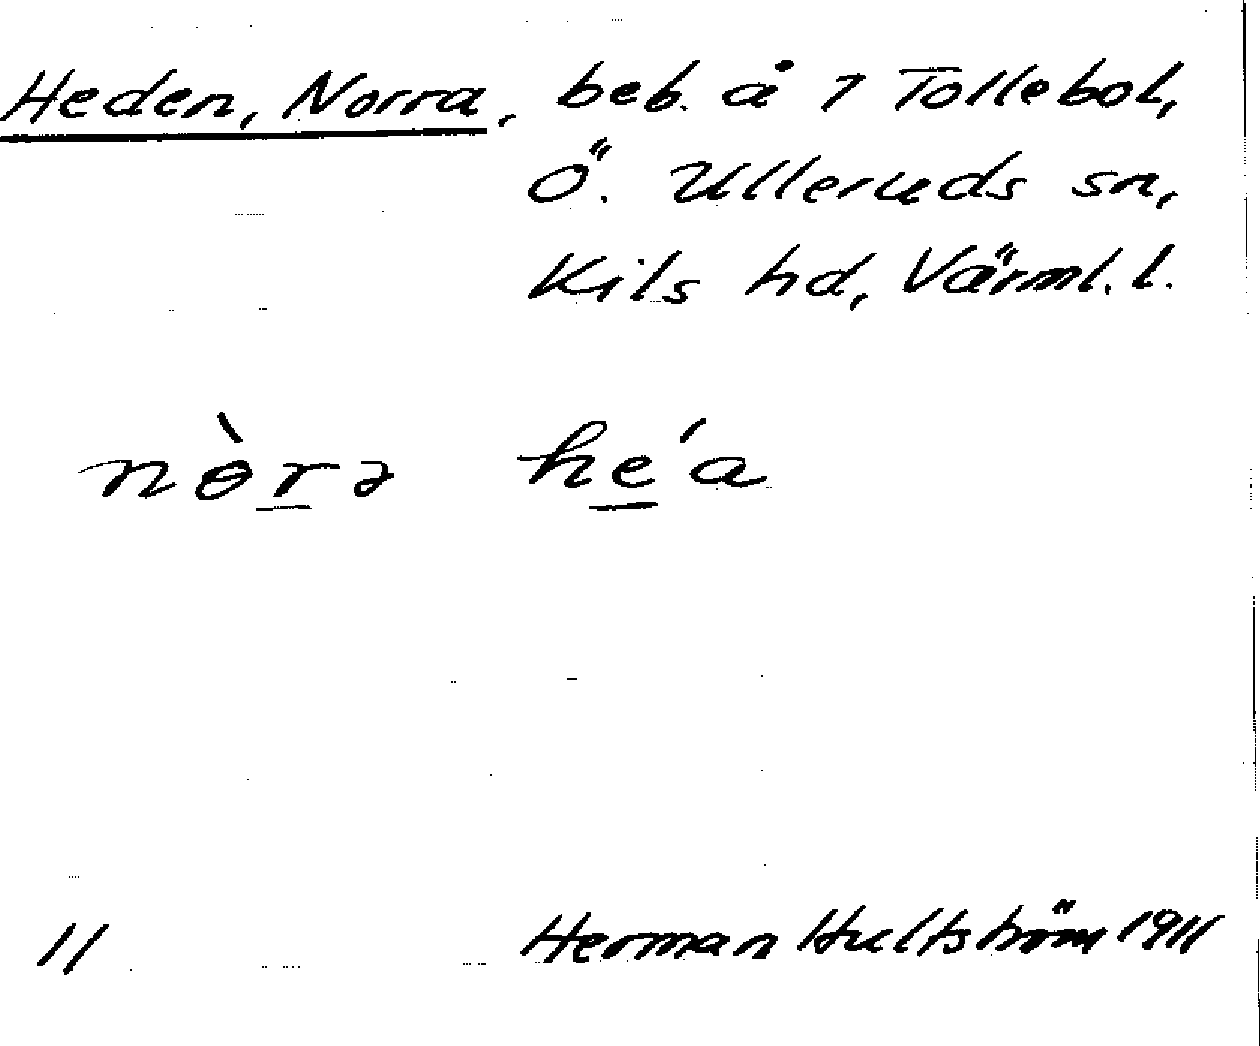 Heden, Norra, beb. å 7 Tollebol,
Ö. Ulleruds sn,
Kils hd, Värml. l.
nɵ̀r̠ə he̠´a
11 Herman Hultström 1911